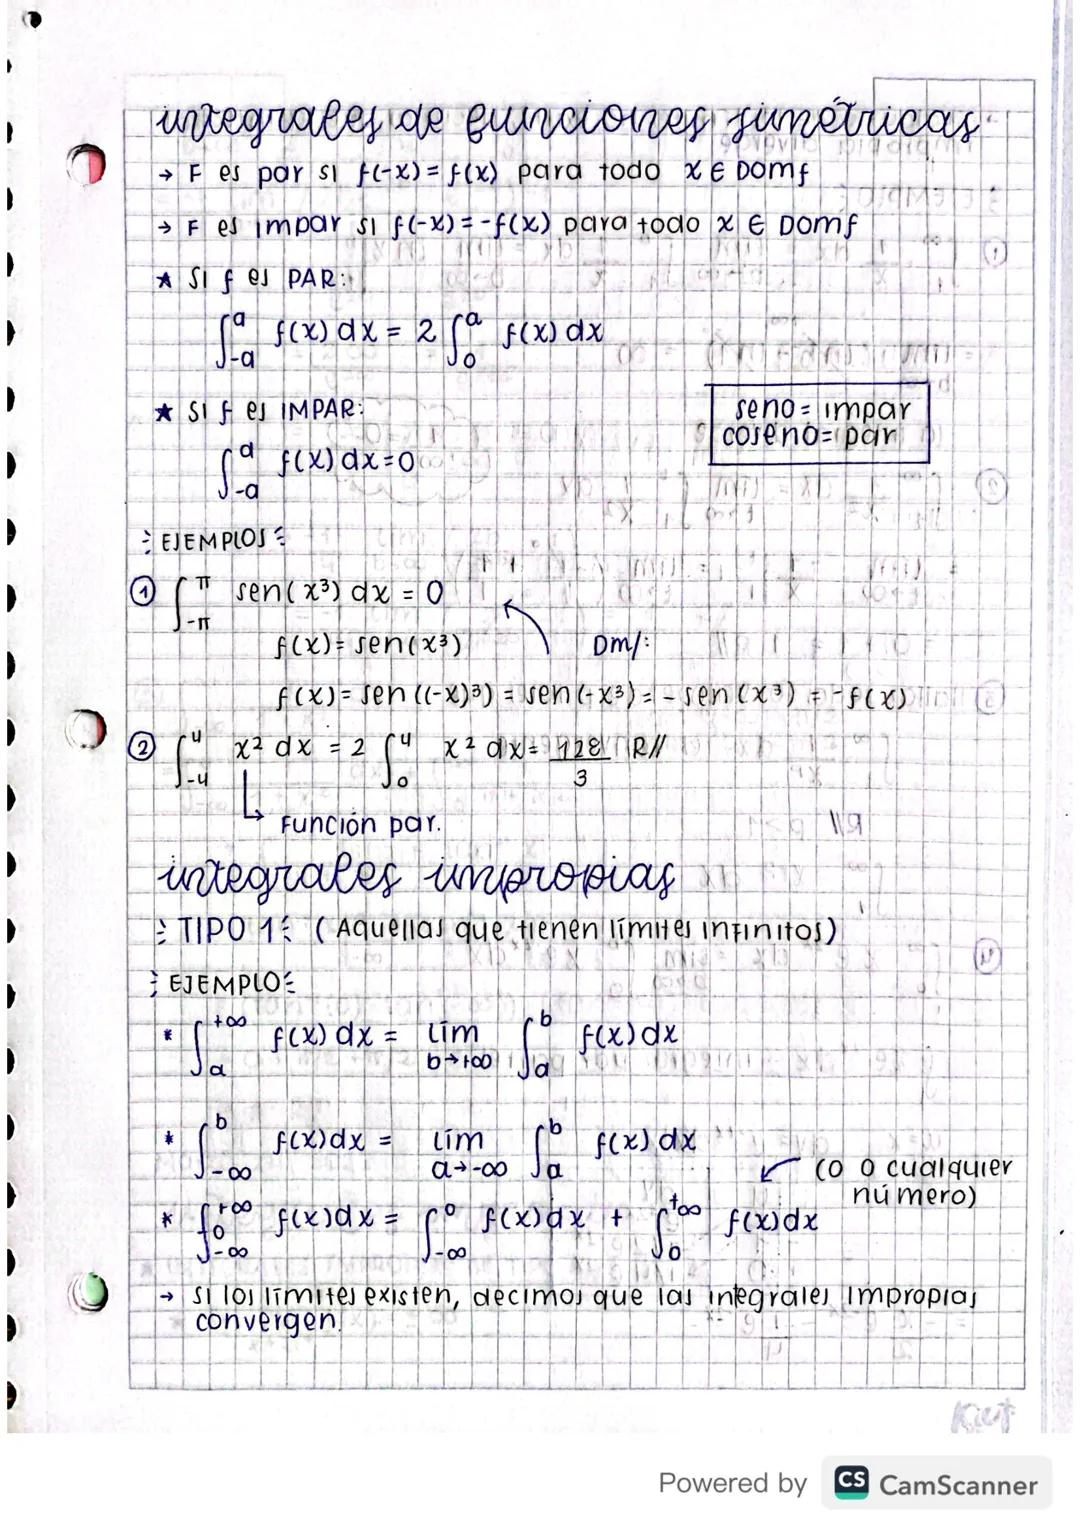 integrales de funciones simétricas
→ F es par si f(-x) = f(x) para todo x ∈ Domf
→ F es impar si f(-x) = -f(x) para todo x ∈ Domf
★ Si f es PAR:
∫_{-a}^{a} f(x) dx = 2 ∫_{0}^{a} f(x) dx
★ Si f es IMPAR:
∫_{-a}^{a} f(x) dx = 0
seno = impar
coseno = par
EJEMPLOS
① ∫_{-π}^{π} sen(x³) dx = 0
f(x) = sen(x³) Dm/:
f(x) = sen((-x)³) = sen(-x³) = -sen(x³) = -f(x)
② ∫_{-4}^{4} x² dx = 2 ∫_{0}^{4} x² dx = 128/3 R//
↳ Función par.
integrales impropias
TIPO 1 (Aquellas que tienen límites infinitos)
EJEMPLO
* ∫_{a}^{+∞} f(x) dx = lím_{b→+∞} ∫_{a}^{b} f(x) dx
* ∫_{-∞}^{b} f(x) dx = lím_{a→-∞} ∫_{a}^{b} f(x) dx
(0 o cualquier
número)
* ∫_{-∞}^{+∞} f(x) dx = ∫_{-∞}^{0} f(x) dx + ∫_{0}^{+∞} f(x) dx
→ Si los límites existen, decimos que las integrales impropias
convergen.
Powered by CS CamScanner